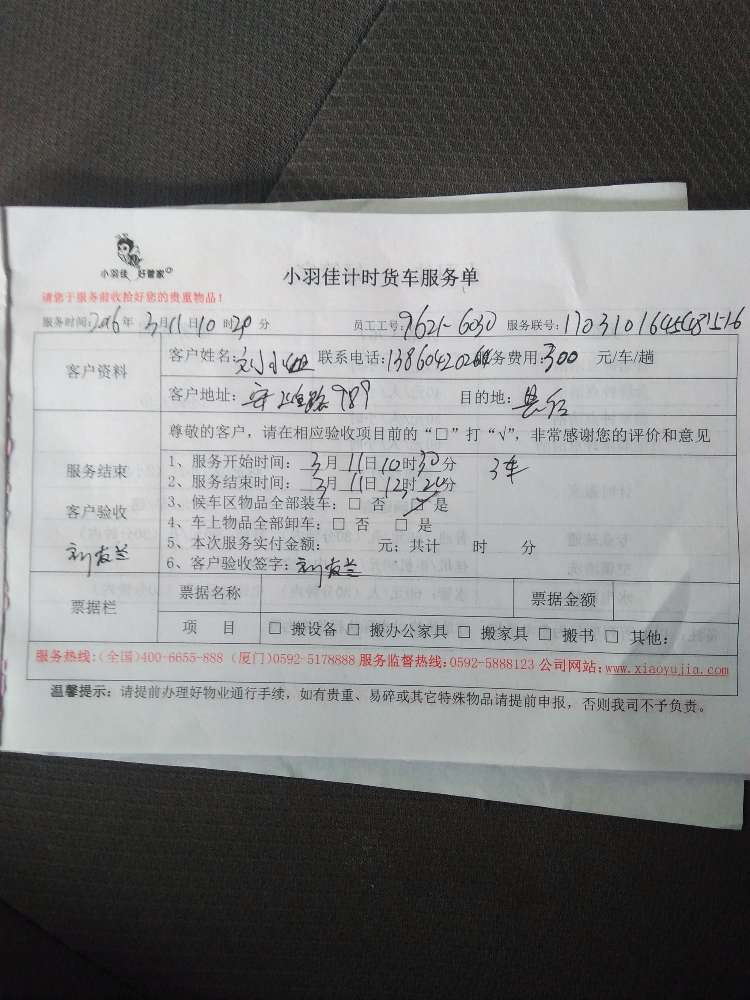 小羽佳 好管家
小羽佳计时货车服务单
请您于服务前收拾好您的贵重物品！
服务时间: 2016年 3月11日10时20分 员工工号: 9621-6030 服务联号:
客户资料
客户姓名: 刘小姐 联系电话: 务费用: 300 元/车/趟
客户地址: 989 目的地:
尊敬的客户，请在相应验收项目前的“□”打“√”，非常感谢您的评价和意见
服务结束
客户验收
刘友兰
1、服务开始时间: 3月11日10时30分 3车
2、服务结束时间: 3月11日12时20分
3、候车区物品全部装车: □ 否 ☑ 是
4、车上物品全部卸车: □ 否 □ 是
5、本次服务实付金额: 元; 共计 时 分
6、客户验收签字: 刘友兰
票据栏
票据名称 票据金额
项 目 □ 搬设备 □ 搬办公家具 □ 搬家具 □ 搬书 □ 其他:
服务热线:(全国)400-6655-888 (厦门)0592-5178888 服务监督热线:0592-5888123 公司网站:www.xiaoyujia.com
温馨提示: 请提前办理好物业通行手续，如有贵重、易碎或其它特殊物品请提前申报，否则我司不予负责。